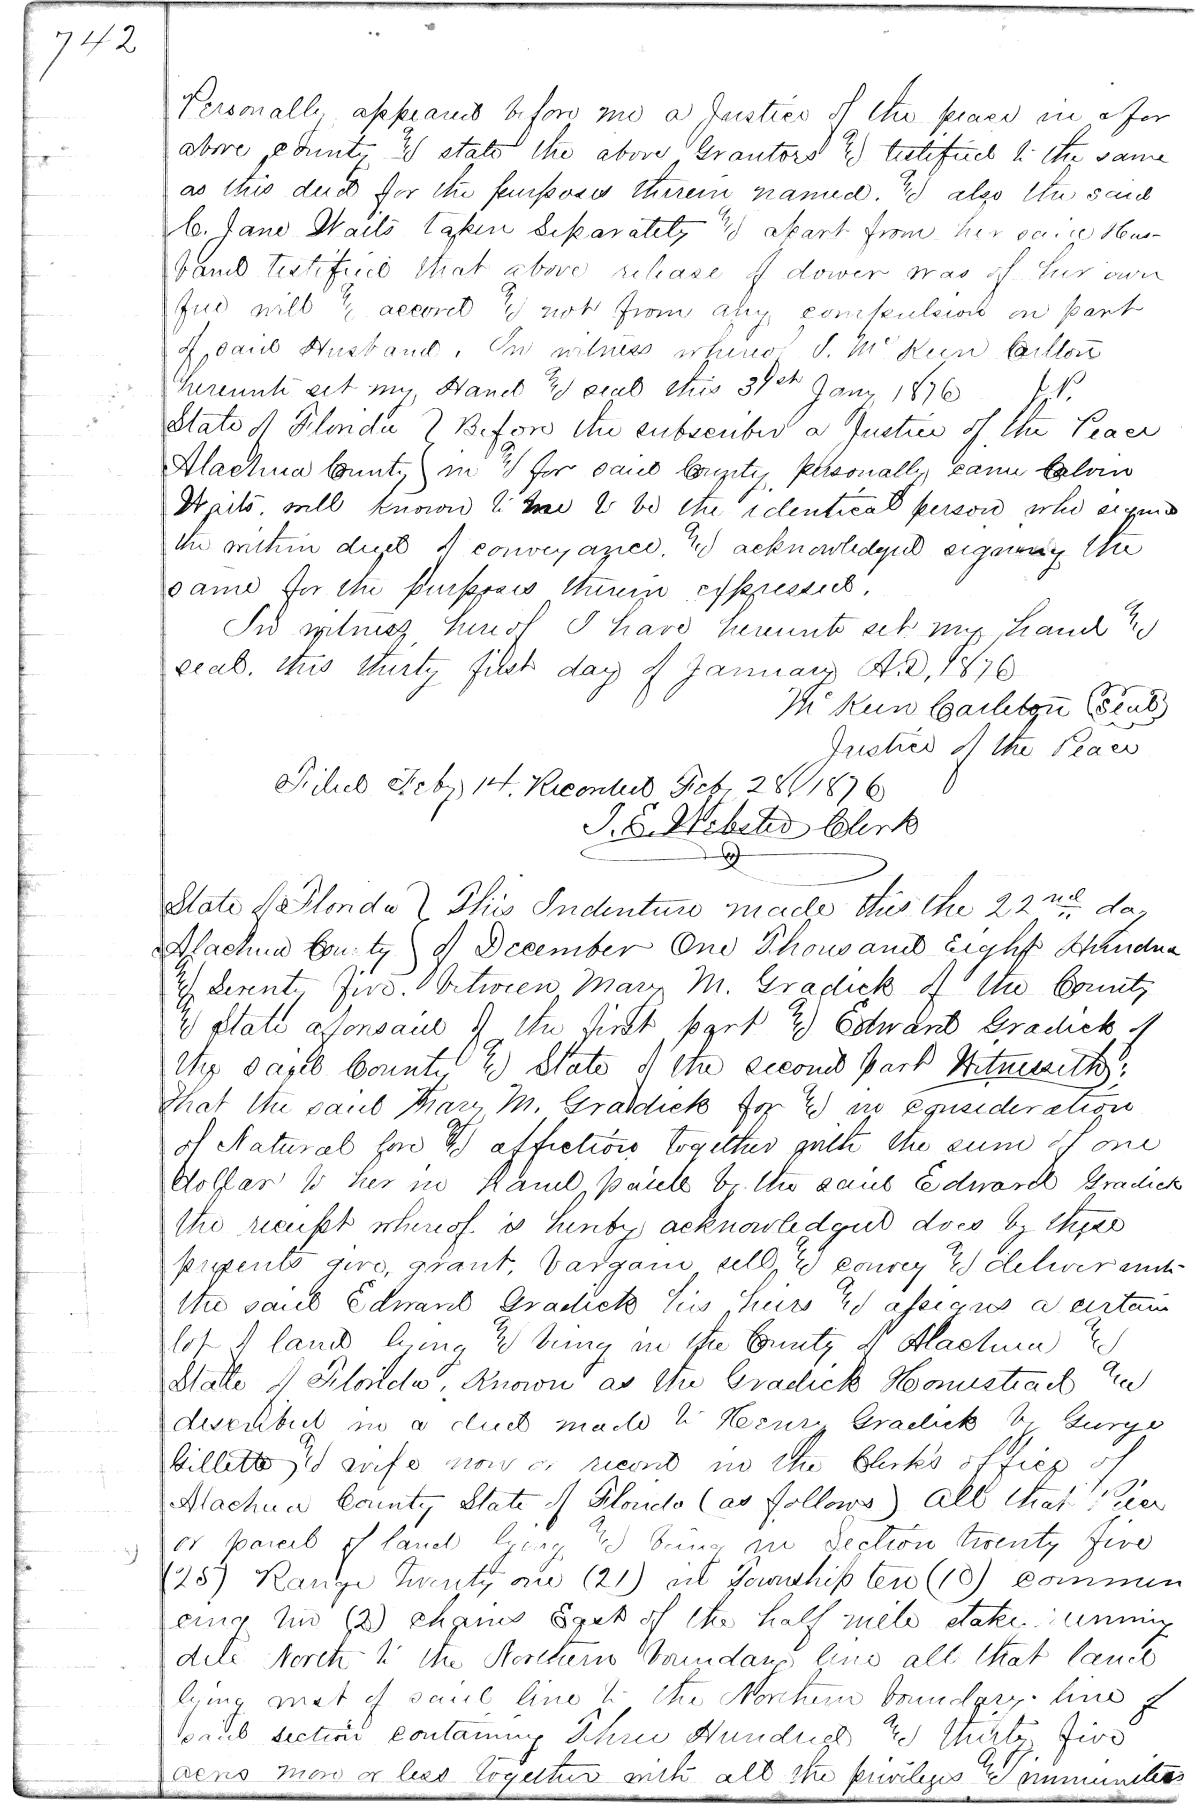 742
Personally appeared before me a Justice of the peace in & for
above county & state the above Grantors & testified to the same
as this deed for the purposes therein named. & also the said
C. Jane Waits taken Separately & apart from her said Hus-
band testified that above release of dower was of her own
free will & accord & not from any compulsion on part
of said Husband. In witness whereof I. McKeen Carlton
hereunto set my Hand & seal this 31st Jany 1876 J.P.
State of Florida } Before the subscriber a Justice of the Peace
Alachua County } in & for said County, personally came Calvin
Waits, well known to me to be the identical person who signed
the within deed of conveyance, & acknowledged signing the
same for the purposes therein expressed.
In witness hereof I have hereunto set my hand &
seal. this thirty first day of January A.D, 1876
McKeen Carleton (Seal)
Justice of the Peace
Filed Feby 14. Recorded Feby 28/1876
J. E. Webster Clerk
State of Florida } This Indenture made this the 22nd day
Alachua County } of December One Thousand Eight Hundred
& Seventy five. between Mary M. Gradick of the County
& State aforesaid of the first part & Edward Gradick of
the said County & State of the second part Witnesseth:
that the said Mary M. Gradick for & in consideration
of Natural love & affection together with the sum of one
dollar to her in hand paid by the said Edward Gradick
the receipt whereof is hereby acknowledged does by these
presents give, grant, bargain sell, & convey & deliver unto
the said Edward Gradick his heirs & assigns a certain
lot of land lying & being in the County of Alachua &
State of Florida, Known as the Gradick Homestead &
described in a deed made to Henry Gradick by George
Gillette & wife now or record in the Clerk's office of
Alachua County State of Florida (as follows) All that Piece
or parcel of land lying & being in Section twenty five
(25) Range twenty one (21) in Township ten (10) commen
cing two (2) chains East of the half mile stake running
due North to the Northern boundary line all that land
lying west of said line to the Northern boundary line of
said section containing Three Hundred & thirty five
acres more or less together with all the privileges & immunities